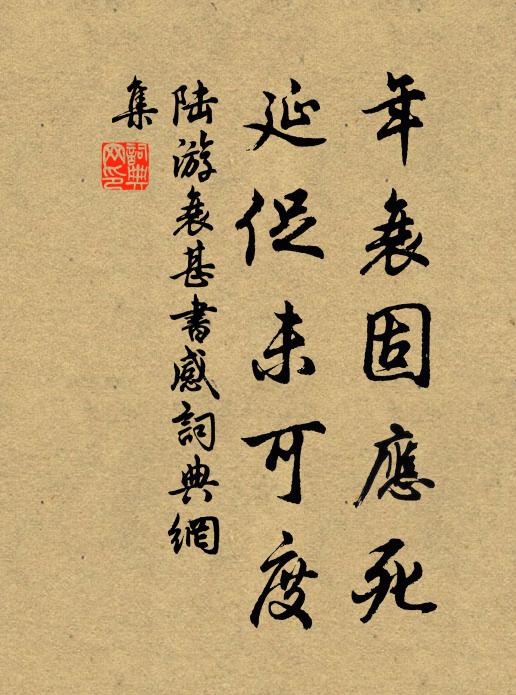 年衰固應死
延促未可度
陸游衰甚書感詞典網
集
詞典網印